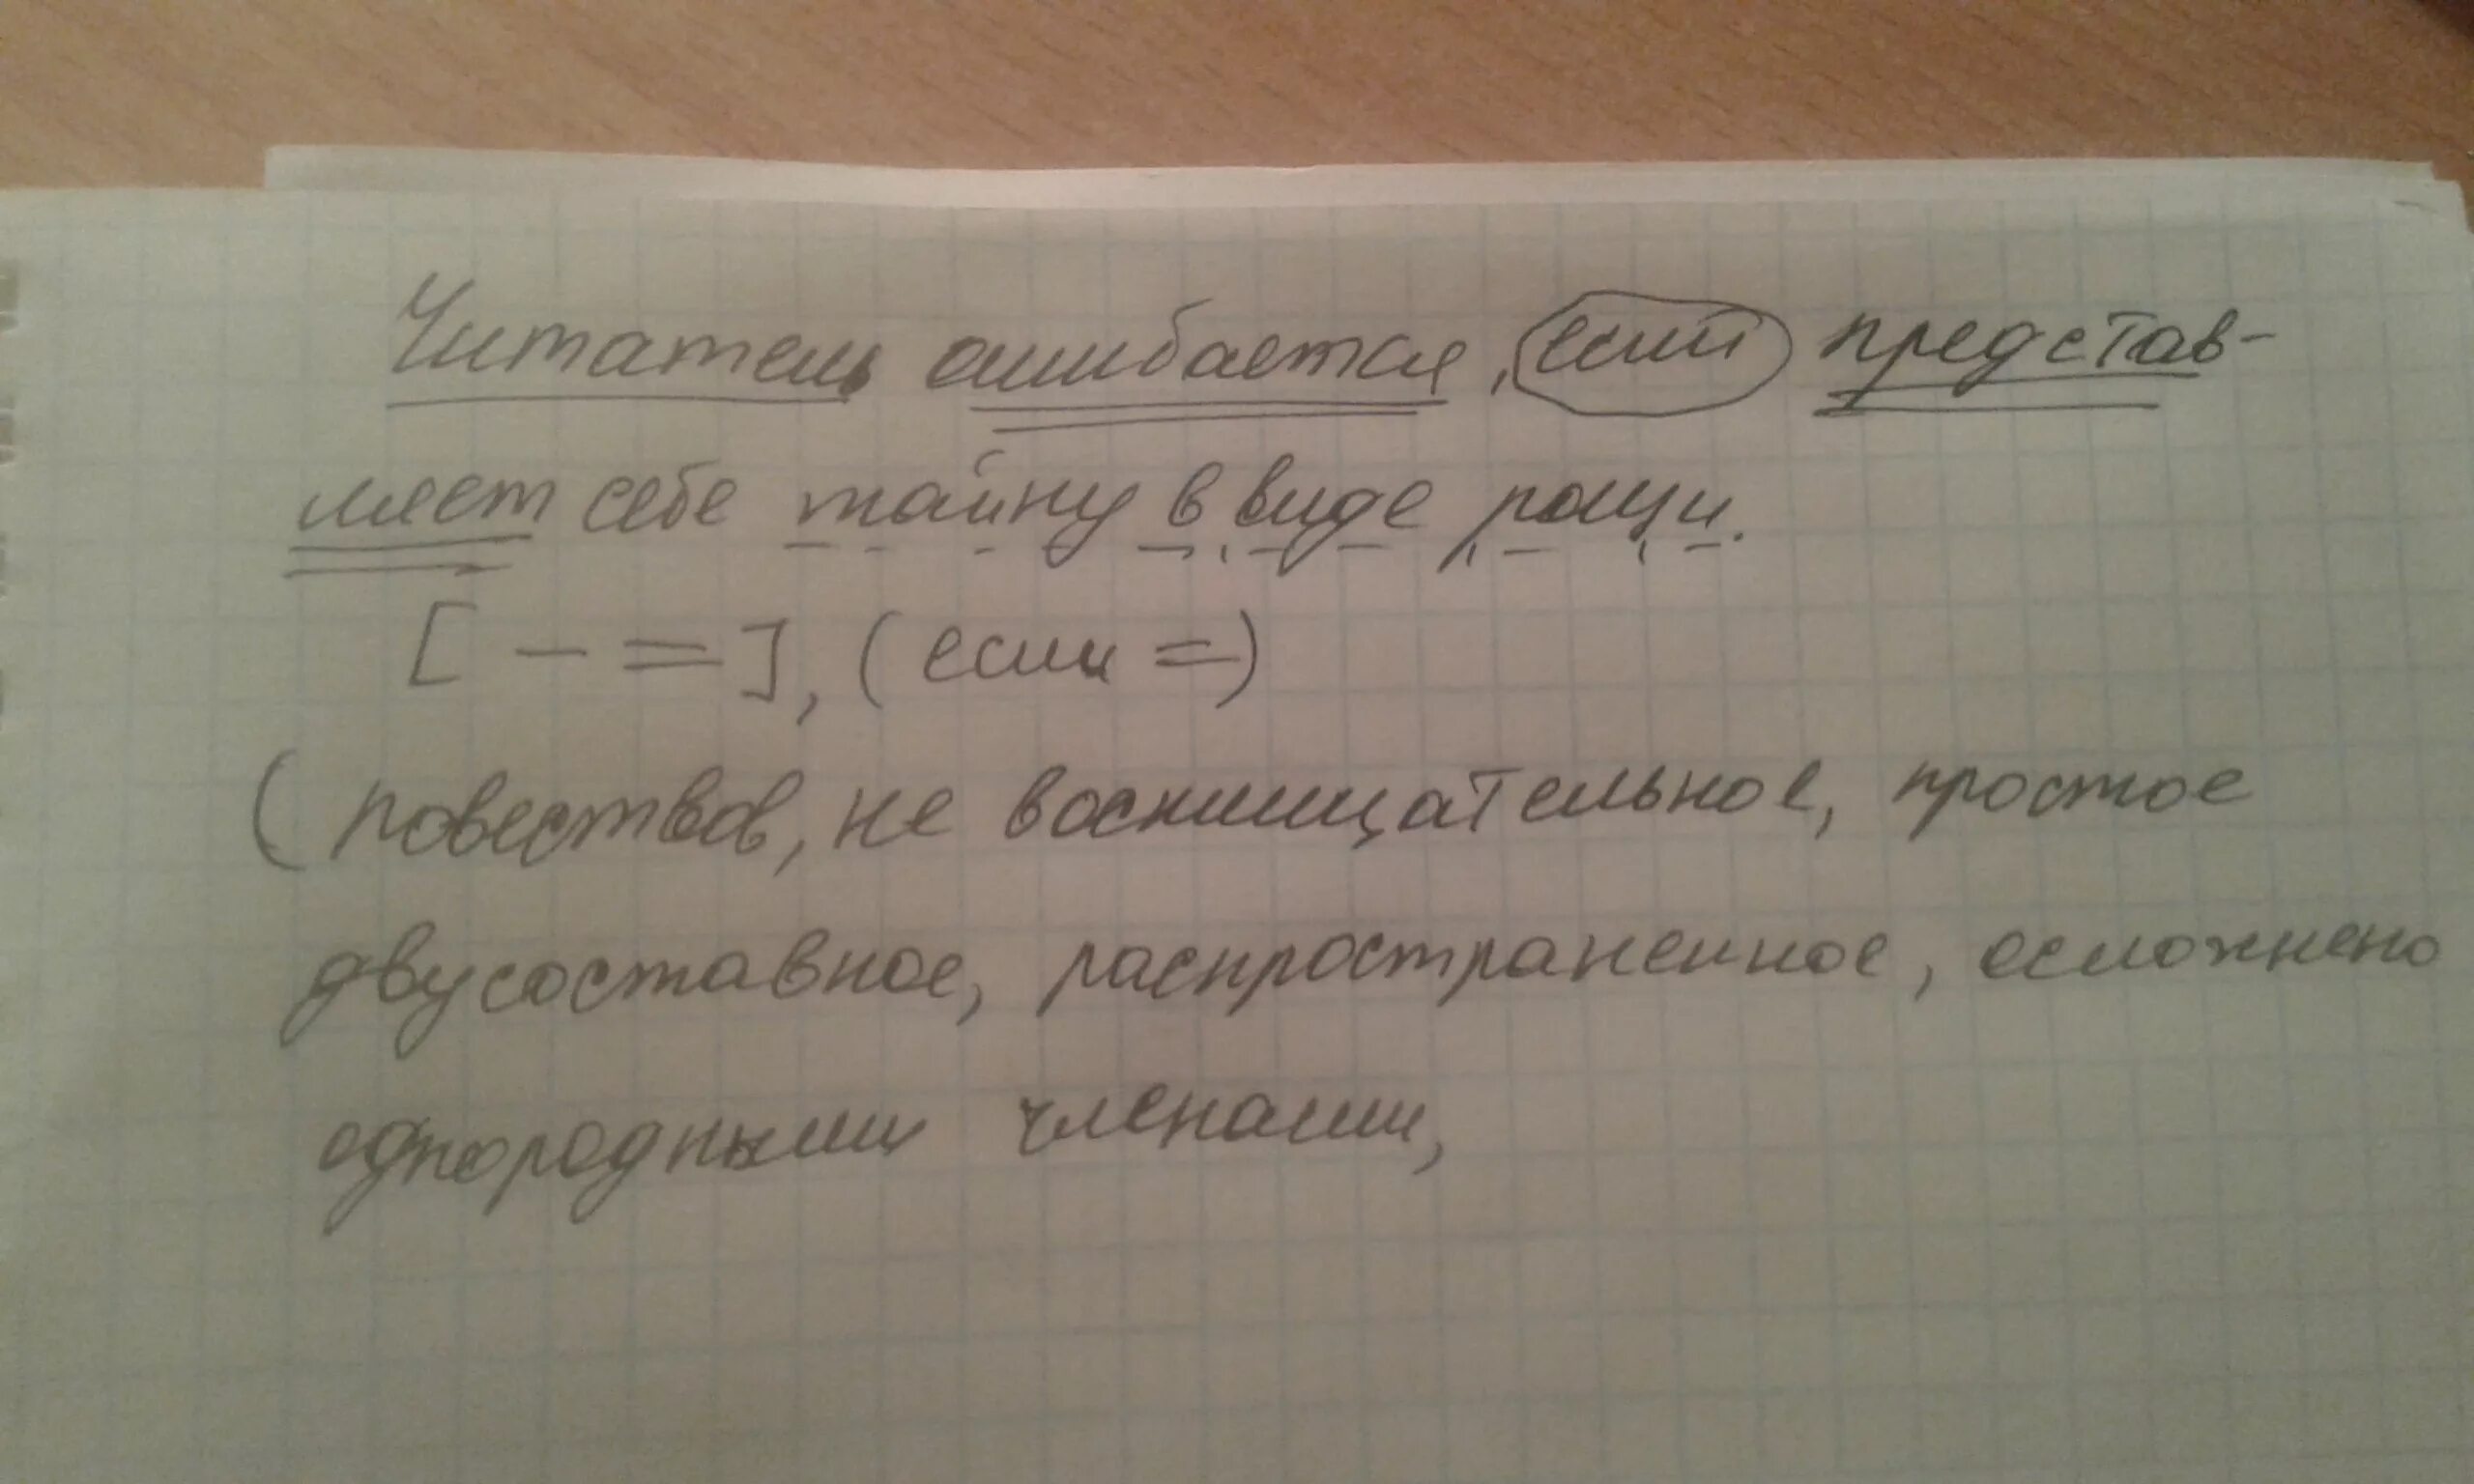 Читатель ошибается, если представ-
ляет себе тайну в виде рощи.
[ — = ], (если =)
(повествов, не восклицательное, простое
двусоставное, распространенное, осложнено
однородными членами,